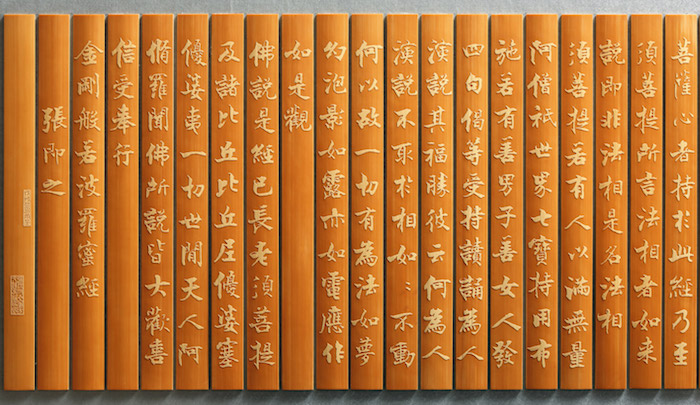 菩薩心者持於此經乃至
須菩提所言法相者如來
說即非法相是名法相
須菩提若有人以滿無量
阿僧祇世界七寶持用布
施若有善男子善女人發
四句偈等受持讀誦為人
演說其福勝彼云何為人
演說不取於相如〻不動
何以故一切有為法如夢
幻泡影如露亦如電應作
如是觀
佛說是經已長老須菩提
及諸比丘比丘尼優婆塞
優婆夷一切世間天人阿
脩羅聞佛所說皆大歡喜
信受奉行
金剛般若波羅蜜經
張即之